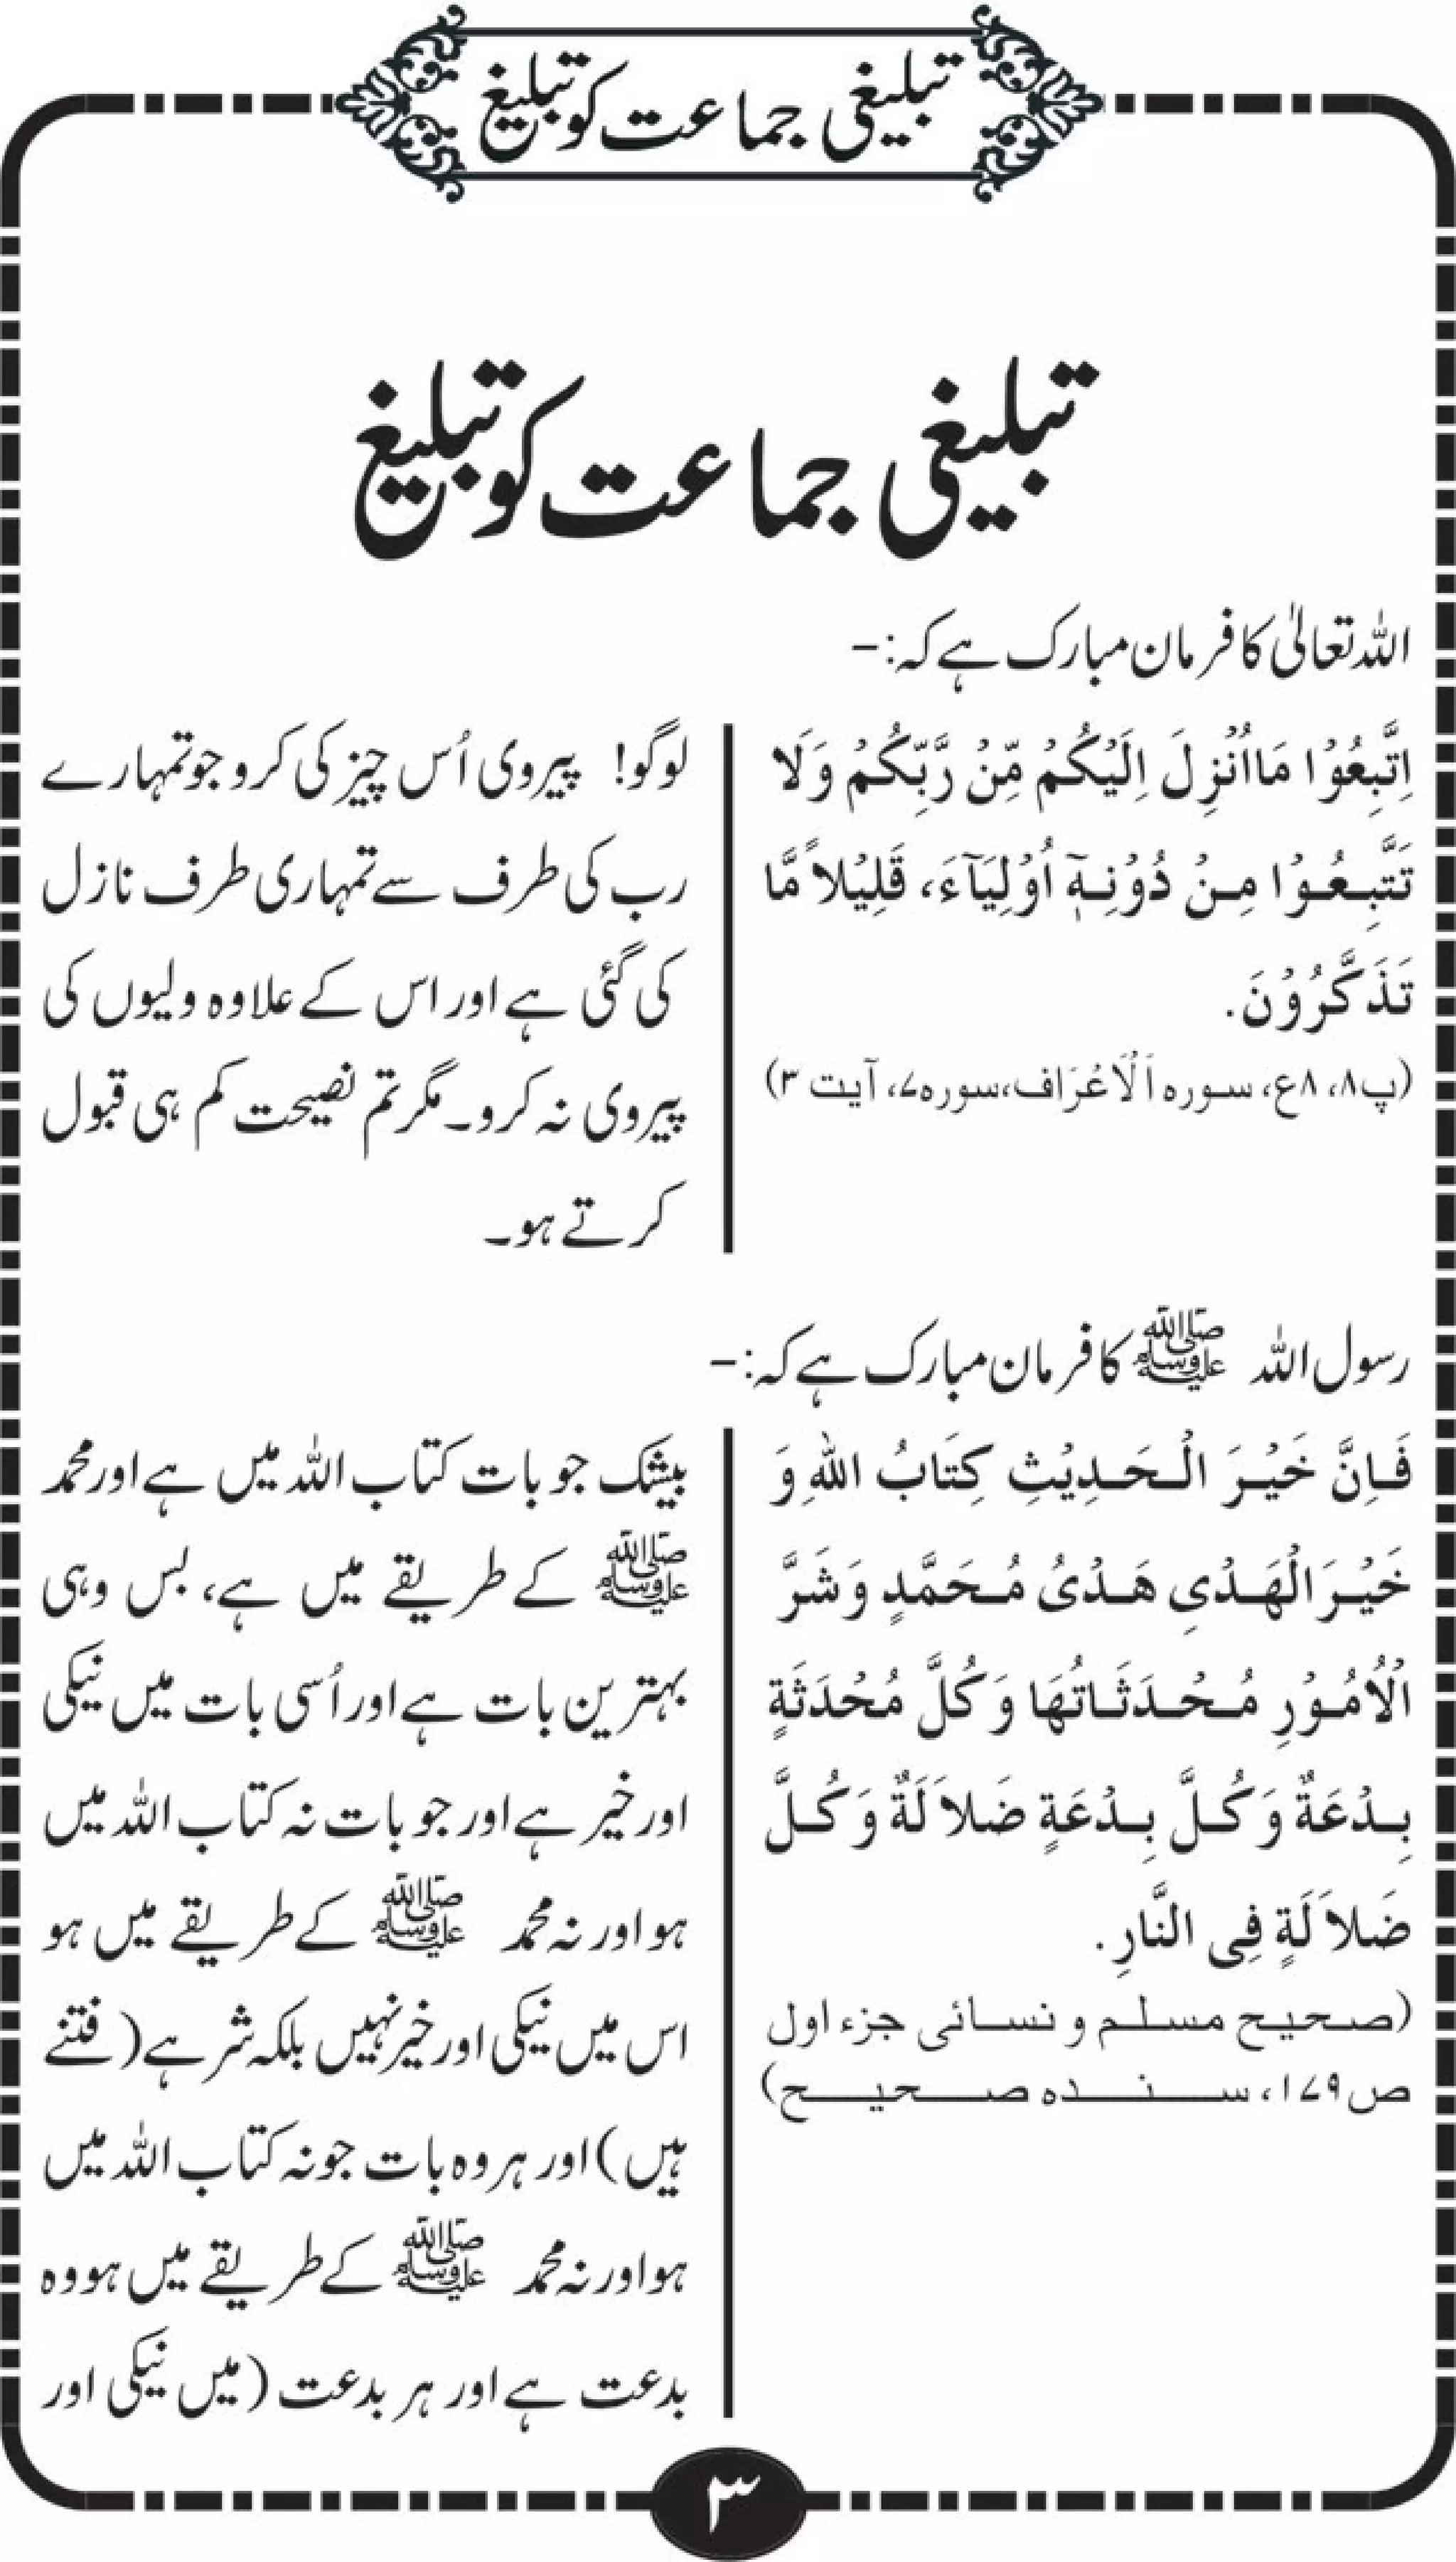 تبلیغی جماعت کو تبلیغ
تبلیغی جماعت کو تبلیغ
اللہ تعالیٰ کا فرمان مبارک ہے کہ:-
اِتَّبِعُوْا مَااُنْزِلَ اِلَیْکُمْ مِّنْ رَّبِّکُمْ وَلَا
تَتَّبِعُوْا مِنْ دُوْنِہٖٓ اُوْلِیَآءَ، قَلِیْلاً مَّا
تَذَکَّرُوْنَ.
(پ۸، ۸ع، سورہ اَلْاَعْرَاف،سورہ۷، آیت ۳)
لوگو! پیروی اُس چیز کی کرو جو تمہارے
رب کی طرف سے تمہاری طرف نازل
کی گئی ہے اور اس کے علاوہ ولیوں کی
پیروی نہ کرو۔ مگر تم نصیحت کم ہی قبول
کرتے ہو۔
رسول اللہ ﷺ کا فرمان مبارک ہے کہ:-
فَاِنَّ خَیْرَ الْحَدِیْثِ کِتَابُ اللہِ وَ
خَیْرَ الْھَدْیِ ھَدْیُ مُحَمَّدٍ وَ شَرَّ
الْاُمُوْرِ مُحْدَثَاتُھَا وَ کُلَّ مُحْدَثَةٍ
بِدْعَةٌ وَ کُلَّ بِدْعَةٍ ضَلاَ لَةٌ وَ کُلَّ
ضَلاَ لَةٍ فِی النَّارِ.
(صحیح مسلم و نسائی جزء اول
ص۱۷۹، سندہ صحیح)
بیشک جو بات کتاب اللہ میں ہے اور محمد
ﷺ کے طریقے میں ہے، بس وہی
بہترین بات ہے اور اُسی بات میں نیکی
اور خیر ہے اور جو بات نہ کتاب اللہ میں
ہو اور نہ محمد ﷺ کے طریقے میں ہو
اس میں نیکی اور خیر نہیں بلکہ شر ہے (فتنے
ہیں) اور ہر وہ بات جو نہ کتاب اللہ میں
ہو اور نہ محمد ﷺ کے طریقے میں ہو وہ
بدعت ہے اور ہر بدعت (میں نیکی اور
۳